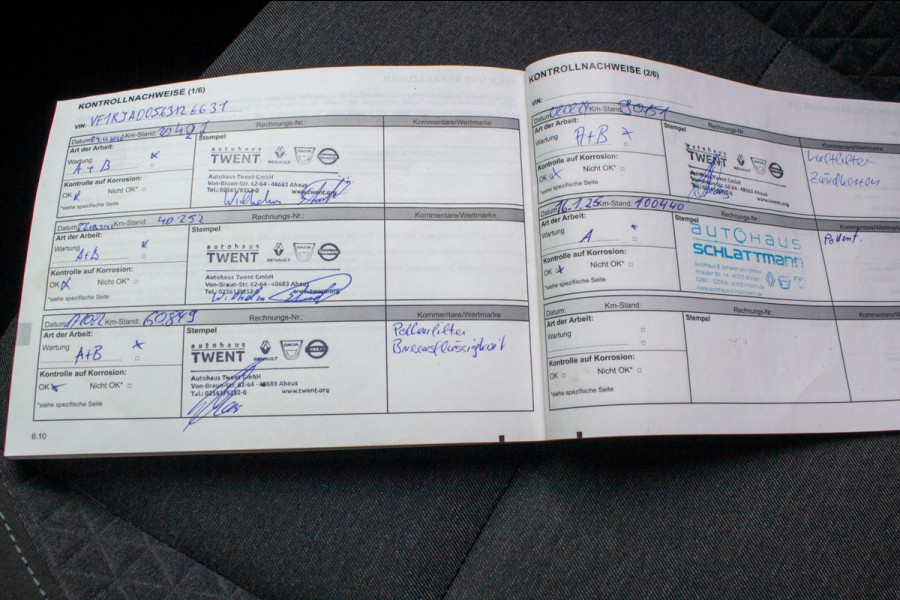 KONTROLLNACHWEISE (1/6)
VIN:
Datum: Km-Stand: 20497
Rechnungs-Nr.:
Kommentare/Wertmarke
Art der Arbeit:
Wartung
A + B
Kontrolle auf Korrosion:
OK Nicht OK*
*siehe spezifische Seite
Stempel
autohaus
TWENT
RENAULT
DACIA
NISSAN
Autohaus Twent GmbH
Von-Braun-Str. 62-64 - 48683 Ahaus
www.twent.org
Datum: Km-Stand: 40252
Rechnungs-Nr.:
Kommentare/Wertmarke
Art der Arbeit:
Wartung
A+B
Kontrolle auf Korrosion:
OK Nicht OK*
*siehe spezifische Seite
Stempel
autohaus
TWENT
RENAULT
DACIA
NISSAN
Autohaus Twent GmbH
Von-Braun-Str. 62-64 - 48683 Ahaus
www.twent.org
Datum: Km-Stand: 60849
Rechnungs-Nr.:
Kommentare/Wertmarke
Art der Arbeit:
Wartung
A+B
Kontrolle auf Korrosion:
OK Nicht OK*
*siehe spezifische Seite
Stempel
autohaus
TWENT
RENAULT
DACIA
NISSAN
Autohaus Twent GmbH
Von-Braun-Str. 62-64 - 48683 Ahaus
www.twent.org
Pollenfilter
Bremsflüssigkeit
6.10
KONTROLLNACHWEISE (2/6)
VIN:
Datum: Km-Stand:
Rechnungs-Nr.:
Kommentare/Wertmarke
Art der Arbeit:
Wartung
A+B
Kontrolle auf Korrosion:
OK Nicht OK*
*siehe spezifische Seite
Stempel
autohaus
TWENT
Autohaus Twent GmbH
Von-Braun-Str. 62-64 - 48683 Ahaus
www.twent.org
Luftfilter
Zündkerzen
Datum: 16.1.25 Km-Stand: 100440
Rechnungs-Nr.:
Kommentare/Wertmarke
Art der Arbeit:
Wartung
A
Kontrolle auf Korrosion:
OK Nicht OK*
*siehe spezifische Seite
Stempel
AUTOHAUS
SCHLATTMANN
Datum: Km-Stand:
Rechnungs-Nr.:
Kommentare/Wertmarke
Art der Arbeit:
Wartung
Kontrolle auf Korrosion:
OK Nicht OK*
*siehe spezifische Seite
Stempel